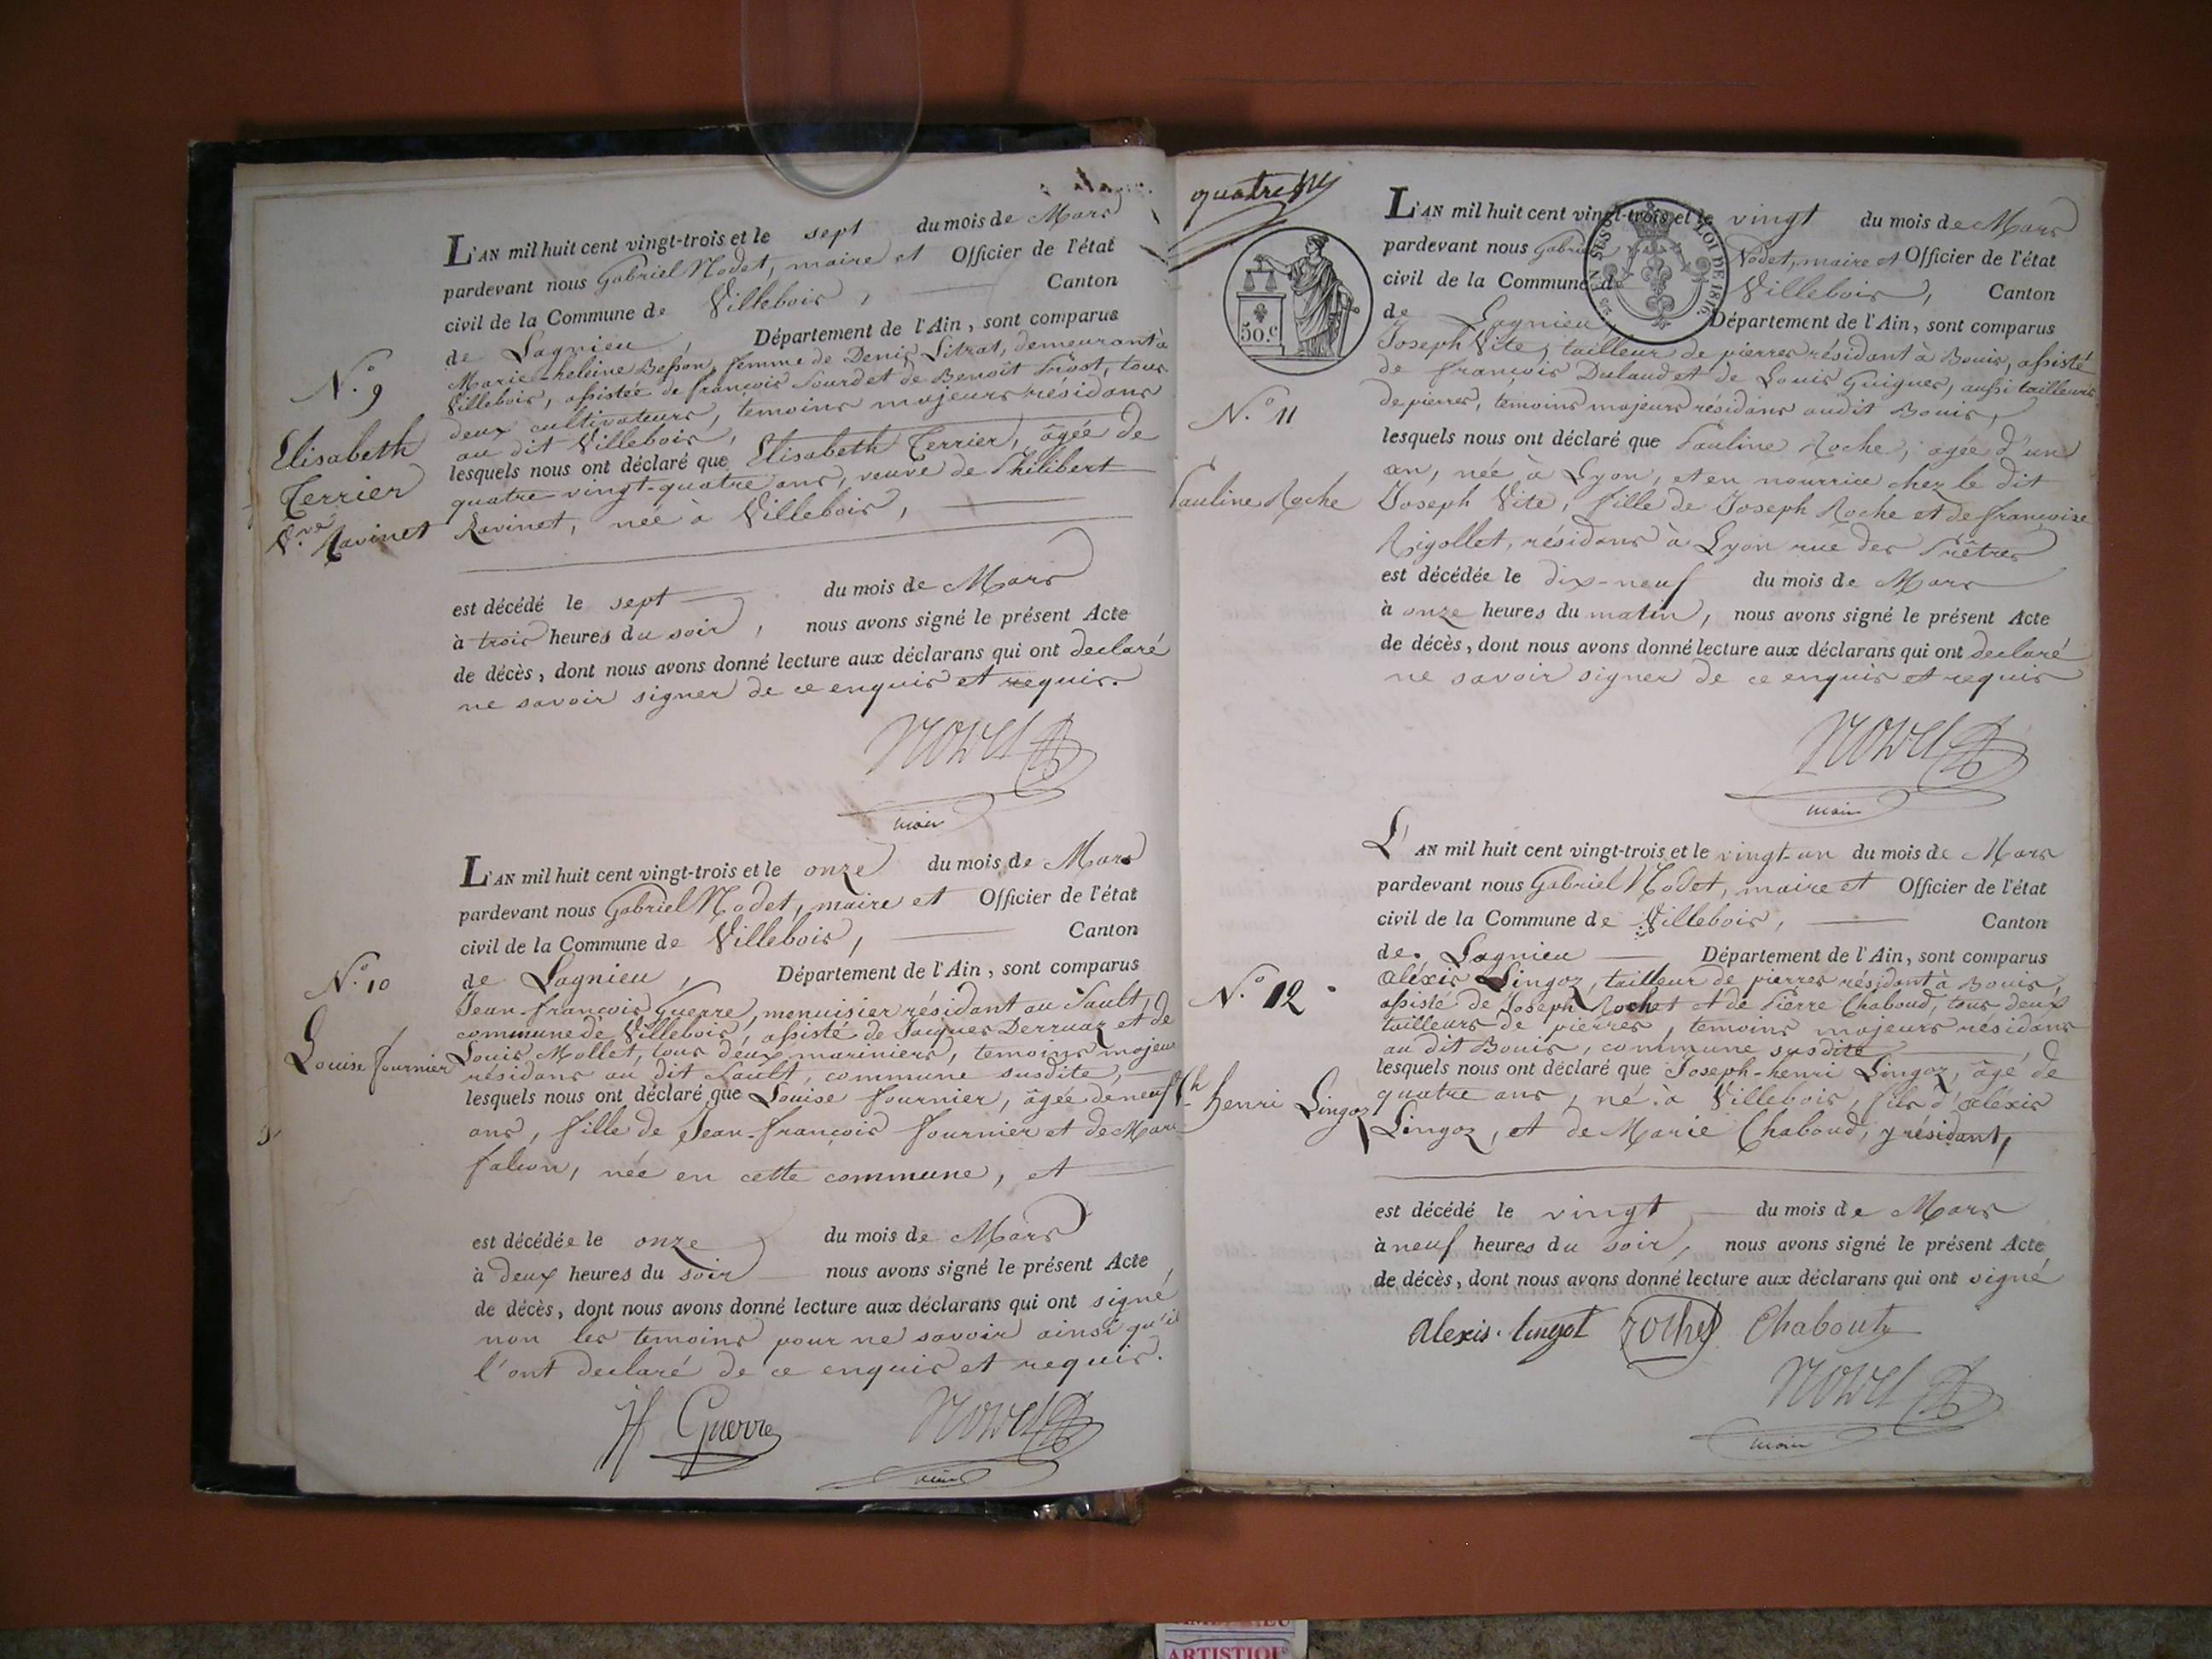 L'AN mil huit cent vingt-trois et le sept du mois de Mars
pardevant nous Gabriel Nodet, maire et Officier de l'état
civil de la Commune de Villebois, Canton
de Lagnieu, Département de l'Ain, sont comparus
Marie-heleine Besson, femme de Denis Litrat, demeurant à
Villebois, assistée de françois Lourdet de Benoît Prost, tous
deux cultivateurs, temoins majeurs résidans
au dit Villebois,
lesquels nous ont déclaré que Elisabeth Terrier, âgée de
quatre vingt-quatre ans, veuve de Philibert
Ravinet, née à Villebois,
est décédé le sept du mois de Mars
à trois heures du soir, nous avons signé le présent Acte
de décès, dont nous avons donné lecture aux déclarans qui ont declaré
ne savoir signer de ce enquis et requis.
N.o 9
Elisabeth
Terrier
V.ve Ravinet
Nodet
maire
L'AN mil huit cent vingt-trois et le onze du mois de Mars
pardevant nous Gabriel Nodet, maire et Officier de l'état
civil de la Commune de Villebois, Canton
de Lagnieu, Département de l'Ain, sont comparus
Jean-françois Guerre, menuisier résidant au Sault,
commune de Villebois, assisté de Jacques Derruaz et de
Louis Mollet, tous deux mariniers, temoins majeurs
résidans au dit Sault, commune susdite,
lesquels nous ont déclaré que Louise fournier, âgée de neuf
ans, fille de Jean-françois fournier et de Marie
falcon, née en cette commune, et
est décédée le onze du mois de Mars
à deux heures du soir nous avons signé le présent Acte
de décès, dont nous avons donné lecture aux déclarans qui ont signé
non les temoins pour ne savoir ainsi qu'il
l'ont declaré de ce enquis et requis.
N.o 10
Louise fournier
Jf Guerre Nodet
maire
quatre
50.c
L'AN mil huit cent vingt-trois et le vingt du mois de Mars
pardevant nous Gabriel Nodet, maire et Officier de l'état
civil de la Commune de Villebois, Canton
de Lagnieu, Département de l'Ain, sont comparus
LOI DE 1816.
Joseph Vite, tailleur de pierres résidant à Bouis, assisté
de françois Dulaud et de Louis Guigues, aussi tailleurs
de pierres, temoins majeurs résidans audit Bouis,
lesquels nous ont déclaré que Pauline Roche, agée d'un
an, née à Lyon, et en nourrice chez le dit
Joseph Vite, fille de Joseph Roche et de françoise
Rigollet, résidans à Lyon rue des Prêtres
est décédée le dix-neuf du mois de Mars
à onze heures du matin, nous avons signé le présent Acte
de décès, dont nous avons donné lecture aux déclarans qui ont declaré
ne savoir signer de ce enquis et requis
N.o 11
Pauline Roche
Nodet
maire
L'AN mil huit cent vingt-trois et le vingt-un du mois de Mars
pardevant nous Gabriel Nodet, maire et Officier de l'état
civil de la Commune de Villebois, Canton
de Lagnieu Département de l'Ain, sont comparus
aléxis Lingoz, tailleur de pierres résidant à Bouis,
assisté de Joseph Rochet et de Pierre Chaboud, tous deux
tailleurs de pierres, temoins majeurs résidans
au dit Bouis, commune susdite
lesquels nous ont déclaré que Joseph-henri Lingoz, âgé de
quatre ans, né à Villebois, fils d'aléxis
Lingoz, et de Marie Chaboud, y résidant,
est décédé le vingt du mois de Mars
à neuf heures du soir, nous avons signé le présent Acte
de décès, dont nous avons donné lecture aux déclarans qui ont signé
N.o 12
henri Lingoz
Alexis. lingot rochet Chabout
Nodet
maire
ARTISTIQUE